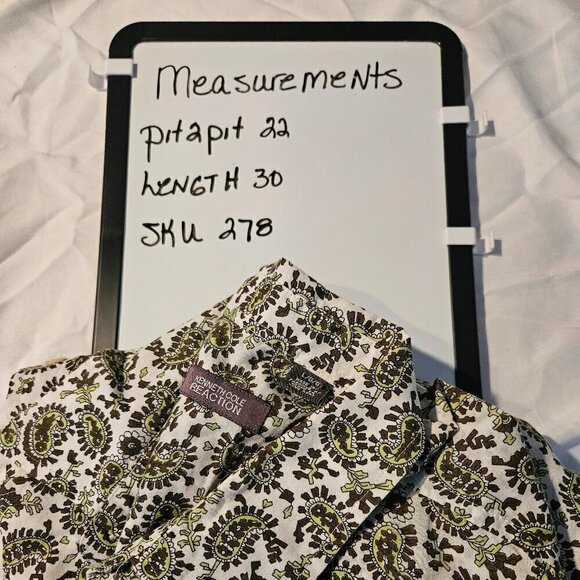 Measurements
pit2pit 22
LENGTH 30
SKU 278
KENNETH COLE
REACTION